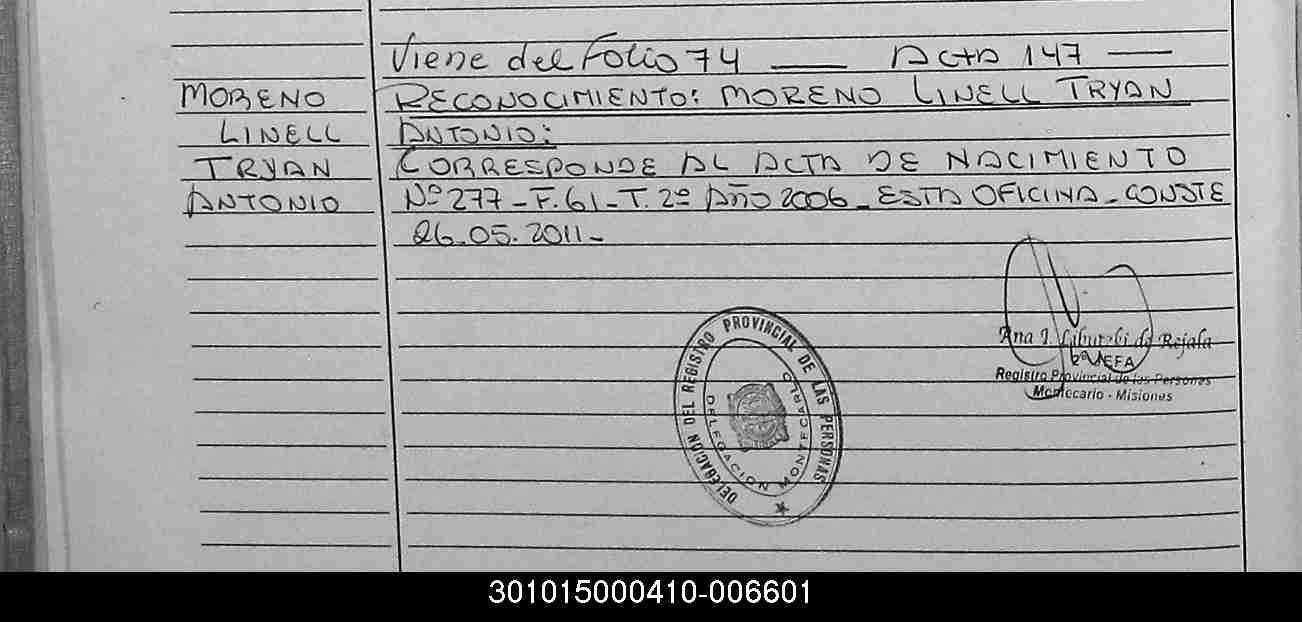 Viene del Folio 74 —— Acta 147 ——
MORENO
LINELL
TRYAN
ANTONIO
RECONOCIMIENTO: MORENO LINELL TRYAN
ANTONIO:
CORRESPONDE AL ACTA DE NACIMIENTO
Nº 277 - F. 61 - T. 2º AÑO 2006 - ESTA OFICINA - CONSTE
26.05.2011 -
DELEGACION DEL REGISTRO PROVINCIAL DE LAS PERSONAS
DELEGACION MONTECARLO
Ana I. de Rejala
2º JEFA
Registro Provincial de las Personas
Montecarlo - Misiones
301015000410-006601